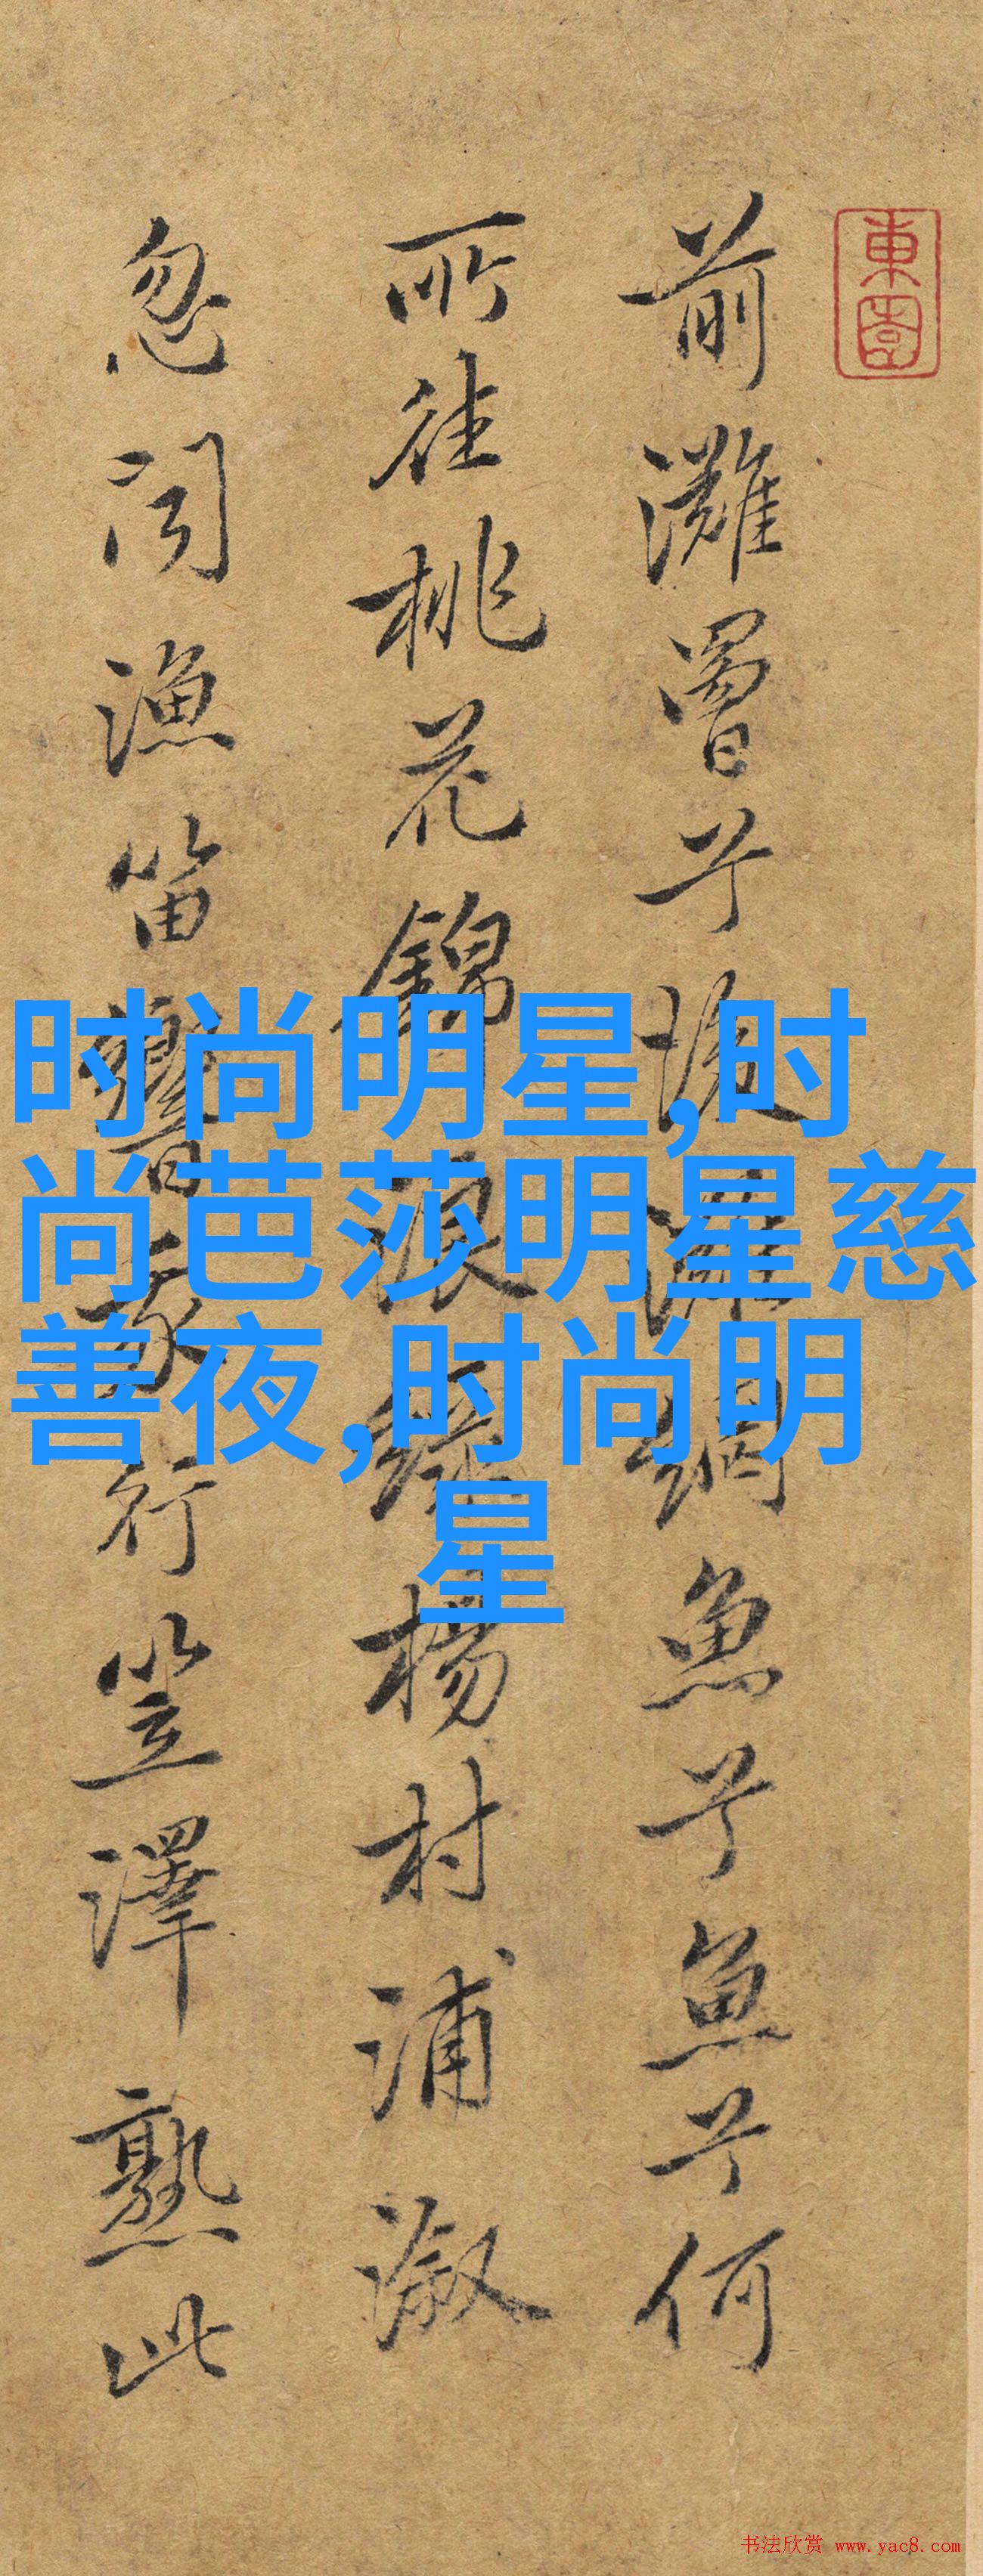 東園
前灘罾兮後灘網魚兮魚兮何
所往桃花錦浪綠楊村浦溆
忽聞漁笛響我行笠澤熟此
时尚明星,时
尚芭莎明星慈
善夜,时尚明
星
书法欣赏 www.yac8.com